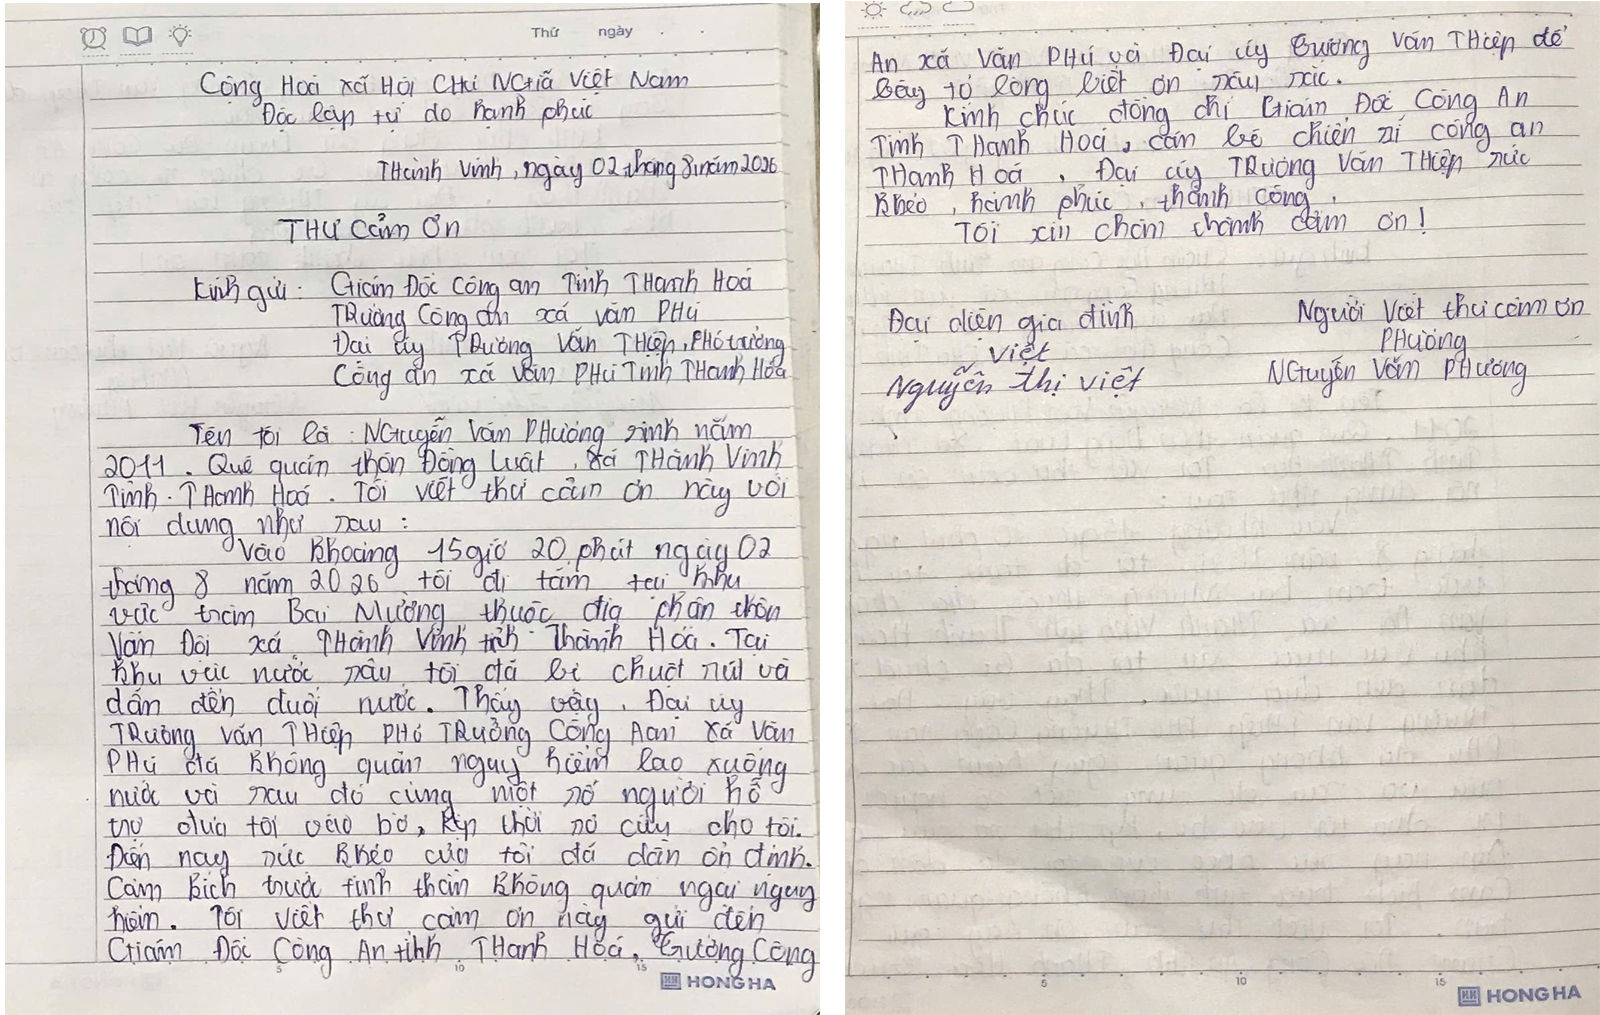 Thứ ngày
Cộng Hoà xã Hội CHủ NGhĩa Việt Nam
Độc lập tự do hạnh phúc
THành Vinh, ngày 02 tháng 8 năm 2026
THƯ CẢM ƠN
Kính gửi: Giám Đốc Công an Tỉnh THanh Hoá
TRưởng Công an xã Văn PHú
Đại úy TRương Văn THiệp, PHó trưởng
Công an xã Văn PHú Tỉnh THanh Hóa
Tên tôi là: NGuyễn Văn PHương sinh năm
2011. Quê quán thôn Đồng Luật, xã THành Vinh
Tỉnh. THanh Hoá. Tôi viết thư cảm ơn này với
nội dung như sau:
Vào khoảng 15 giờ 20 phút ngày 02
tháng 8 năm 2026 tôi đi tắm tại khu
vực tràm Bai Mường thuộc địa phân thôn
Vân Đôi xã THành Vinh tỉnh THanh Hóa. Tại
khu vực nước sâu tôi đã bị chuột rút và
dẫn đến đuối nước. Thấy vậy, Đại úy
TRương Văn THiệp PHó TRưởng Công Aan xã Văn
PHú đã không quản nguy hiểm lao xuống
nước và sau đó cùng một số người hỗ
trợ đưa tôi vào bờ, kịp thời sơ cứu cho tôi.
Đến nay sức khỏe của tôi đã dần ổn định.
Cảm kích trước tinh thần không quản ngại nguy
hiểm. Tôi viết thư cảm ơn này gửi đến
Giám Đốc Công An tỉnh THanh Hoá, Trưởng Công
5 10 15
HONG HA
An xã Văn PHú và Đại úy Trương Văn THiệp để
bày tỏ lòng biết ơn sâu sắc.
Kính chúc đồng chí Giám Đốc Công An
Tỉnh THanh Hoá, cán bộ chiến sĩ công an
THanh Hoá, Đại úy TRương Văn THiệp sức
khỏe, hạnh phúc, thành công.
Tôi xin chân thành cảm ơn!
Đại diện gia đình
Việt
Nguyễn Thị Việt
Người viết thư cảm ơn
PHương
NGuyễn Văn PHương
5 10 15
HONG HA